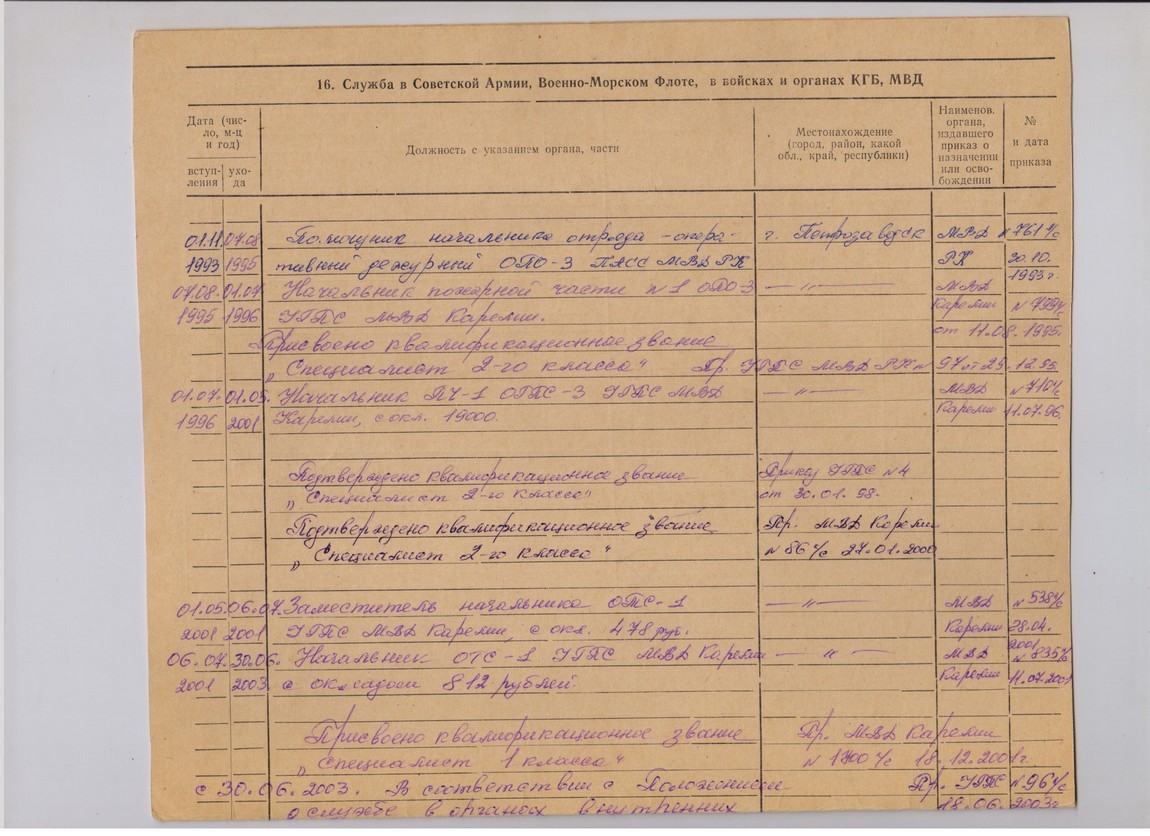 16. Служба в Советской Армии, Военно-Морском Флоте, в войсках и органах КГБ, МВД
Дата (чис-
ло, м-ц
и год)
вступ-
ления
ухо-
да
Должность с указанием органа, части
Местонахождение
(город, район, какой
обл., край, республики)
Наименов.
органа,
издавшего
приказ о
назначении
или осво-
бождении
№
и дата
приказа
01.11 07.08 Помощник начальника отряда - опера- г. Петрозаводск МВД № 761 л/с
1993 1995 тивный дежурный ОПО-3 ПАСС МВД РК РК 20.10.
1993 г.
07.08. 01.07 Начальник пожарной части № 1 ОПО-3 — " — МВД
1995 1996 УГПС МВД Карелии. Карелии № 799 л/с
от 11.08.1995.
Присвоено квалификационное звание
„Специалист 2-го класса“ Пр. УГПС МВД РК № 97 от 29.12.95.
01.07. 01.05. Начальник ПЧ-1 ОГПС-3 УГПС МВД — " — МВД № 710 л/с
1996 2001 Карелии, с окл. 19000. Карелии 11.07.96.
Подтверждено квалификационное звание Приказ УГПС № 4
„Специалист 2-го класса“ от 30.01.98.
Подтверждено квалификационное звание Пр. МВД Карелии
„Специалист 2-го класса“ № 86 л/с 27.01.2000
01.05 06.07. Заместитель начальника ОТС-1 — " — МВД № 538 л/с
2001 2001 УГПС МВД Карелии, с окл. 478 руб. Карелии 28.04.
2001
06.07. 30.06. Начальник ОТС-1 УГПС МВД Карелии — " — МВД № 835 л/с
2001 2003. с окладом 812 рублей. Карелии 11.07.2001
Присвоено квалификационное звание Пр. МВД Карелии
„Специалист 1 класса“ № 1700 л/с 18.12.2001г.
с 30.06.2003. В соответствии с Положением Пр. УГПС № 96 л/с
о службе в органах внутренних 18.06.2003г